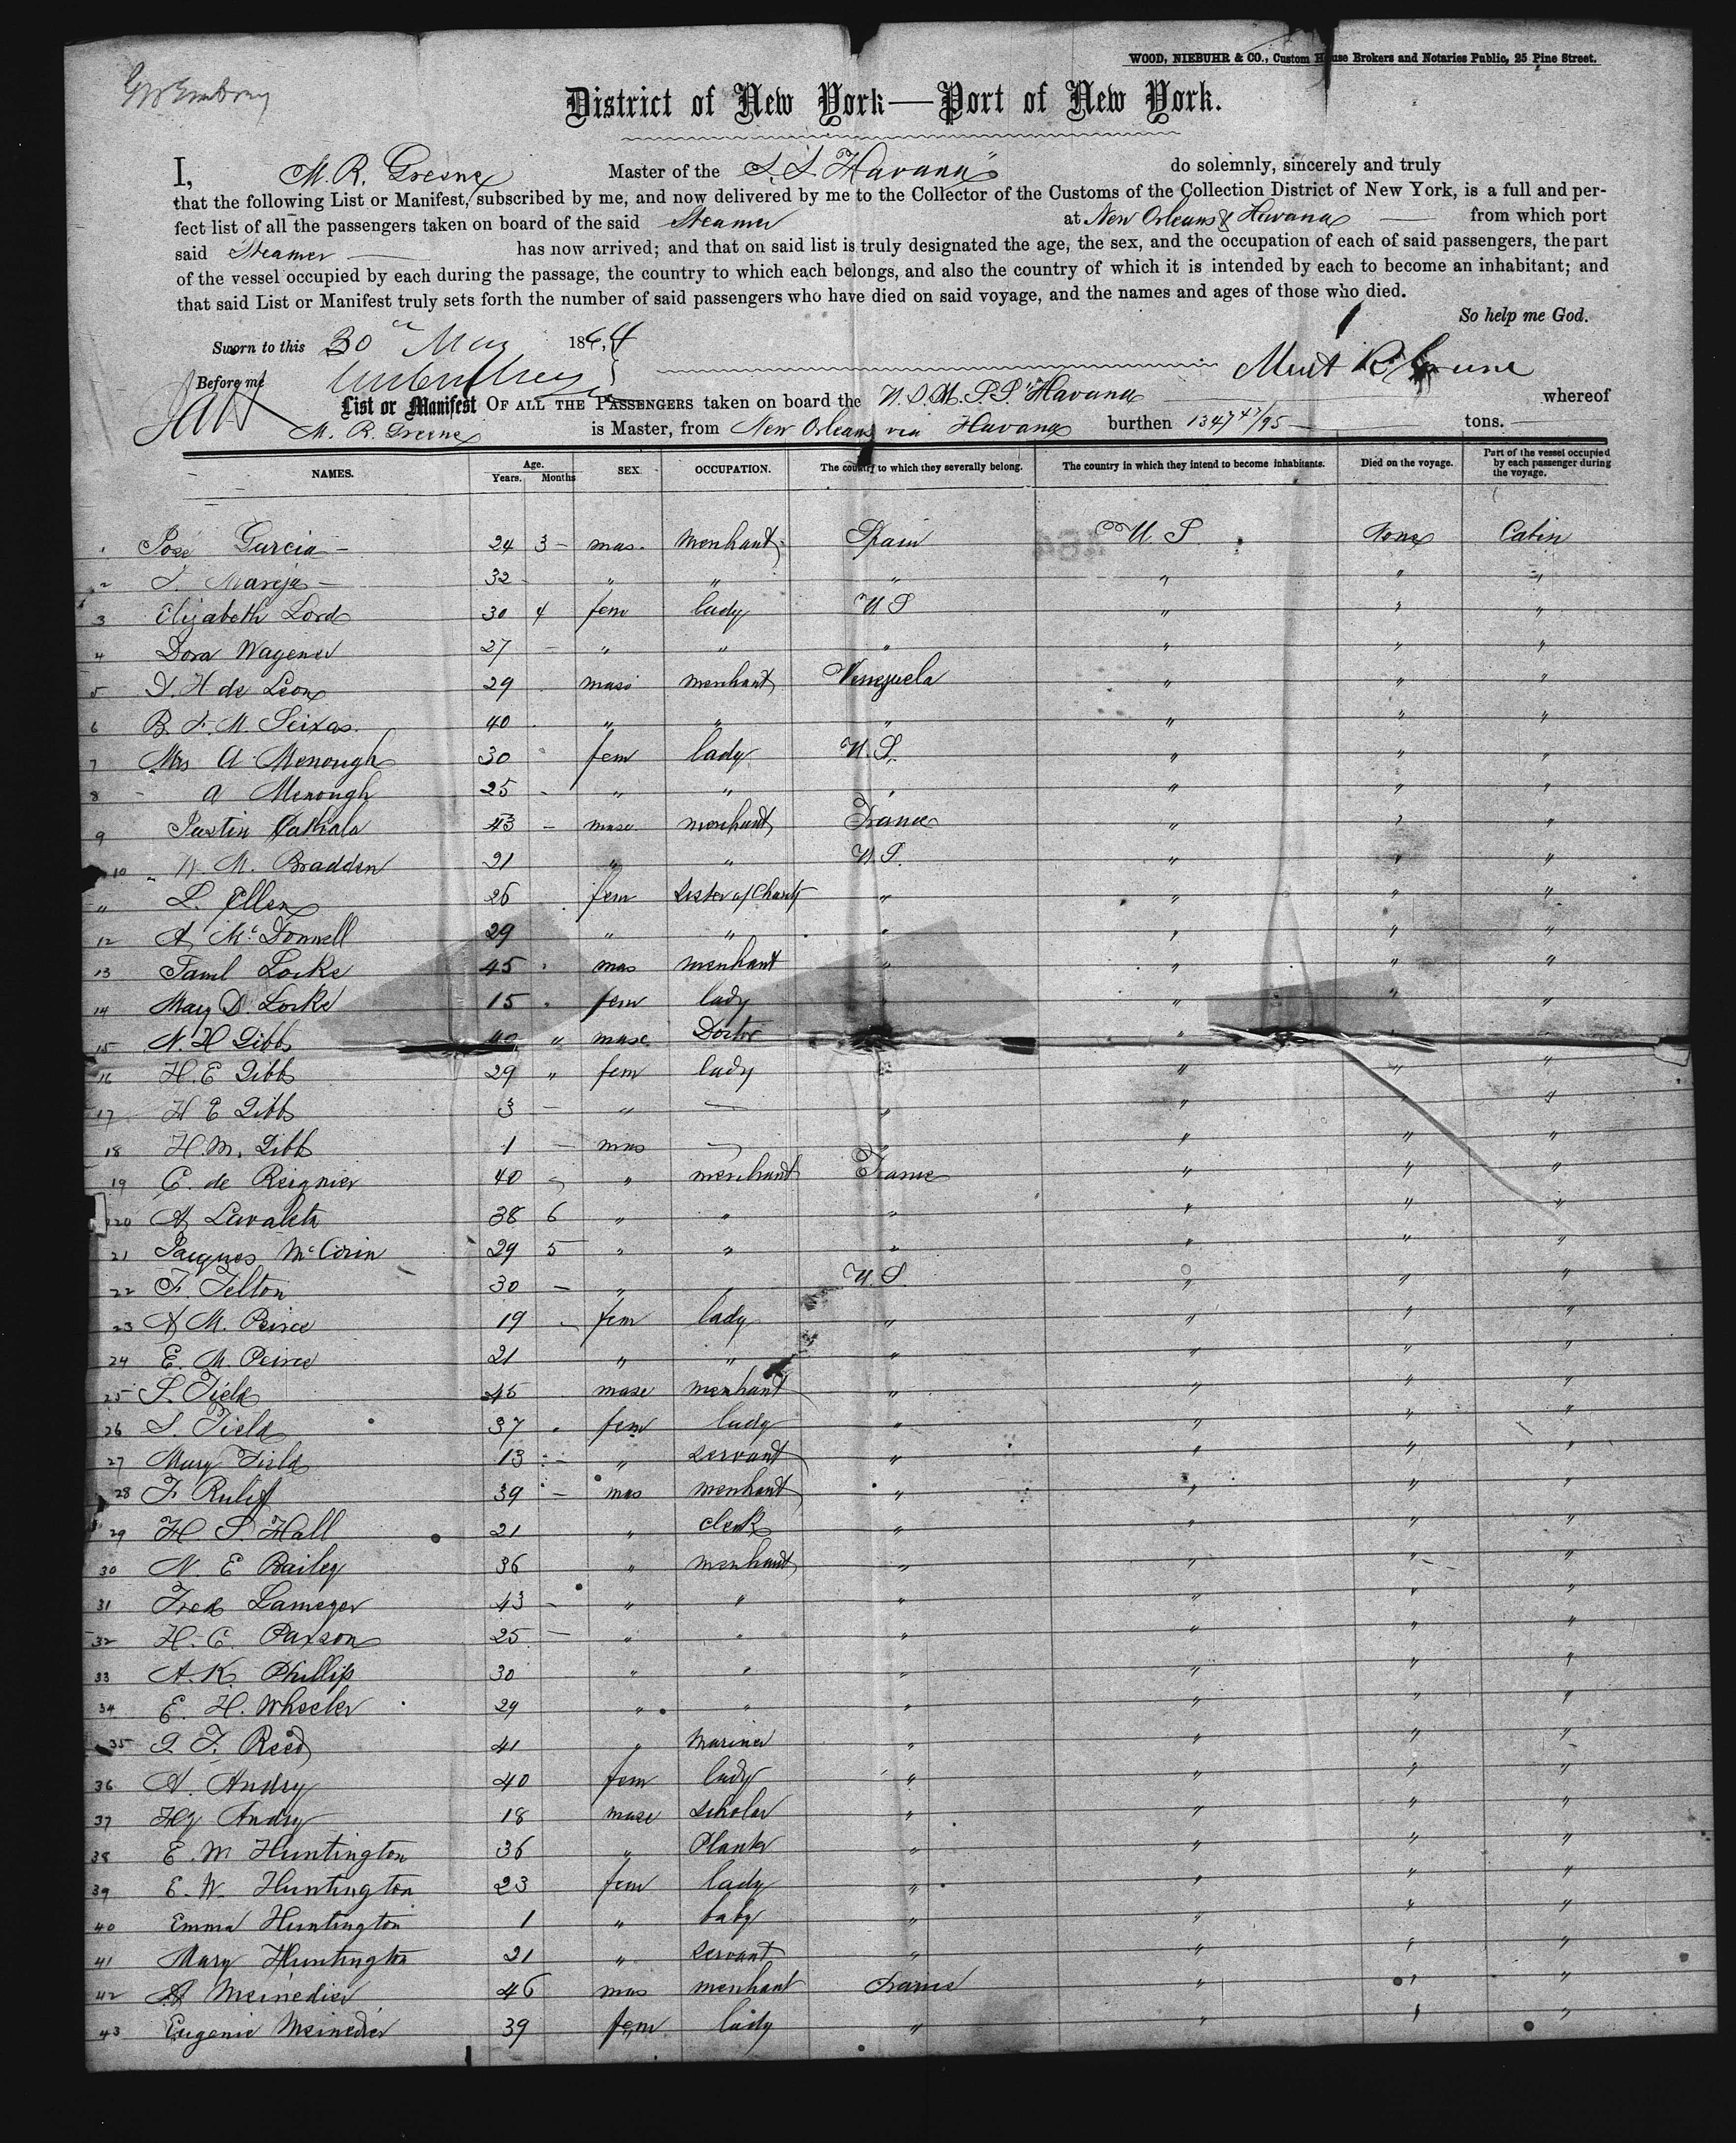 WOOD, NIEBUHR & CO., Custom House Brokers and Notaries Public, 25 Pine Street.
District of New York—Port of New York.
I, M. R. Greene Master of the S.S. Havana" do solemnly, sincerely and truly
that the following List or Manifest, subscribed by me, and now delivered by me to the Collector of the Customs of the Collection District of New York, is a full and per-
fect list of all the passengers taken on board of the said Steamer at New Orleans & Havana from which port
said Steamer has now arrived; and that on said list is truly designated the age, the sex, and the occupation of each of said passengers, the part
of the vessel occupied by each during the passage, the country to which each belongs, and also the country of which it is intended by each to become an inhabitant; and
that said List or Manifest truly sets forth the number of said passengers who have died on said voyage, and the names and ages of those who died.
So help me God.
Sworn to this 30 May 1864
Before me
List or Manifest OF ALL THE PASSENGERS taken on board the U.S.M.S.S. "Havana whereof
M. R. Greene is Master, from New Orleans via Havana burthen 1347 47/95 tons.
NAMES. Age. Years. Months SEX OCCUPATION. The country to which they severally belong. The country in which they intend to become inhabitants. Died on the voyage. Part of the vessel occupied by each passenger during the voyage.
1 José Garcia 24 3 mas. Merchant Spain U. S. None Cabin
2 32 " " " " " "
3 Elizabeth Lord 30 4 fem lady U S " " "
4 Dora Wagener 27 " " " " " "
5 D. H de Leon 29 masc merchant Venezuela " " "
6 B. F. M. Seixas. 40 " " " " " "
7 Mrs A Menough 30 fem lady U. S. " " "
8 " A Menough 25 " " " " " "
9 Justin 43 masc merchant France " " "
10 W. M. Bradden 21 " " U.S. " " "
" L. Ellen 26 fem Sister of Charity " " " "
12 A McDonnell 29 " " " " " "
13 Saml Locke 45 mas merchant " " " "
14 Mary D. Locke 15 fem lady " " "
15 N. H Gibbs 40 " masc Doctor " " "
16 H. E Gibbs 29 " fem lady " " " "
17 H E Gibbs 3 " " " " "
18 H. M. Gibbs 1 mas " " " "
19 E. de Reignier 40 " merchant France " " "
20 A 38 6 " " " " " "
21 Jacques 29 5 " " " " " "
22 F. Felton 30 " " U. S. " " "
23 A M. Peirce 19 fem lady " " " "
24 E. M. Peirce 21 " " " " " "
25 S. Field 45 masc merchant " " " "
26 S. Field 37 fem lady " " " "
27 Mary Field 13 " servant " " " "
28 F. Ruliff 39 mas merchant " " " "
29 H. S. Hall 21 " clerk " " " "
30 N. E Bailey 36 " merchant " " " "
31 Fred 43 " " " " " "
32 H. C. Paxson 25 " " " " " "
33 A. K. Phillips 30 " " " " " "
34 E. H. Wheeler 29 " " " " " "
35 F. Reed 41 " Mariner " " " "
36 A. Andry 40 fem lady " " " "
37 Hy Andry 18 masc scholar " " " "
38 E. M Huntington 36 " Planter " " " "
39 E. W. Huntington 23 fem lady " " " "
40 Emma Huntington 1 " baby " " " "
41 Mary Huntington 21 " servant " " " "
42 A Meinedier 46 mas merchant France " " "
43 Eugenie Meinedier 39 fem lady " " " "